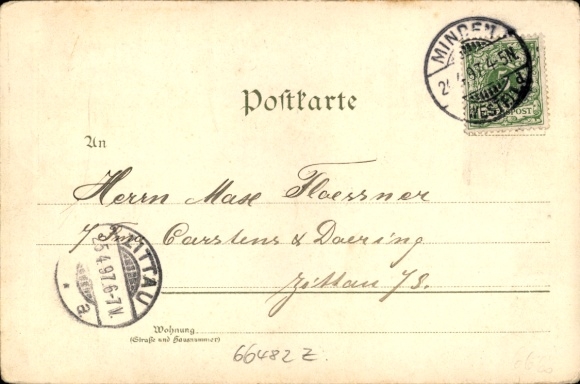 MINDEN
4-5N.
WESTFALEN
POST
Postkarte
An
Herrn Max Floessner
Carstens & Doering
Zittau i/S.
ZITTAU
25.4.97.6-7N.
* a
Wohnung
(Straße und Hausnummer)
66482 Z